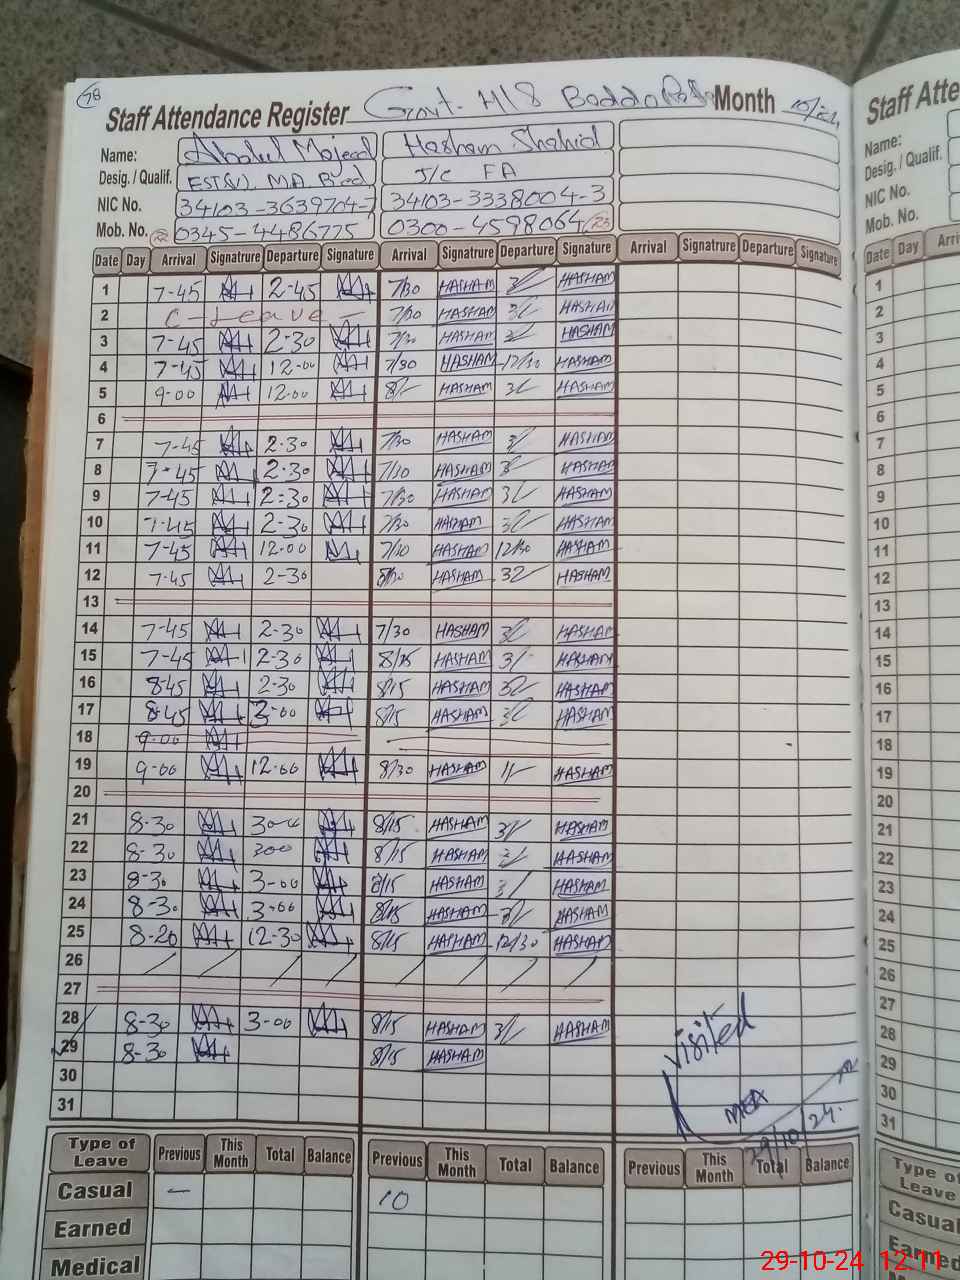 78
Staff Attendance Register Govt. H/S Baddo Month 10/24
Name: Abdul Majeed Hasham Shahid
Desig. / Qualif. EST M.A, B.ed J/c FA
NIC No. 34103-3639704-7 34103-3338004-3
Mob. No. 0345-4486775 0300-4598064
Date Day Arrival Signatrure Departure Signature Arrival Signature Departure Signature Arrival Signatrure Departure Signature
1 7-45 2-45 7/30 HASHAM 3/ HASHAM
2 C-Leave 7/30 HASHAM 3/ HASHAM
3 7-45 2-30 7/30 HASHAM 3/ HASHAM
4 7-45 12-00 7/30 HASHAM 12/30 HASHAM
5 9-00 12-00 8/ HASHAM 3/ HASHAM
6
7 7-45 2-30 7/30 HASHAM 3/ HASHAM
8 7-45 2-30 7/30 HASHAM 3/ HASHAM
9 7-45 2-30 7/30 HASHAM 3/ HASHAM
10 7-45 2-30 7/30 HASHAM 3/ HASHAM
11 7-45 12-00 7/30 HASHAM 12/30 HASHAM
12 7-45 2-30 8/30 HASHAM 3/ HASHAM
13
14 7-45 2-30 7/30 HASHAM 3/ HASHAM
15 7-45 2-30 8/15 HASHAM 3/ HASHAM
16 8-45 2-30 8/15 HASHAM 3/ HASHAM
17 8-45 3-00 8/15 HASHAM 3/ HASHAM
18 9-00
19 9-00 12-00 8/30 HASHAM 1/ HASHAM
20
21 8-30 3-00 8/15 HASHAM 3/ HASHAM
22 8-30 300 8/15 HASHAM 3/ HASHAM
23 8-30 3-00 8/15 HASHAM 3/ HASHAM
24 8-30 3-00 8/15 HASHAM 3/ HASHAM
25 8-20 12-30 8/15 HASHAM 12/30 HASHAM
26
27
28 8-30 3-00 8/15 HASHAM 3/ HASHAM
29 8-30 8/15 HASHAM
30
31
Visited
MEA
29/10/24.
Type of Leave Previous This Month Total Balance Previous This Month Total Balance Previous This Month Total Balance
Casual - 10
Earned
Medical
Staff Atte
Name:
Desig. / Qualif.
NIC No.
Mob. No.
Date Day Arri
1
2
3
4
5
6
7
8
9
10
11
12
13
14
15
16
17
18
19
20
21
22
23
24
25
26
27
28
29
30
31
Type of
Leave
Casual
Earned
Medical
29-10-24 12:11